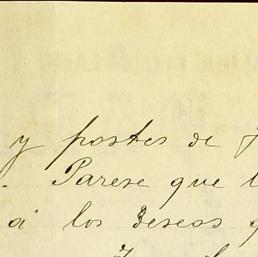 y postes de
. Parese que l
á los deseos q